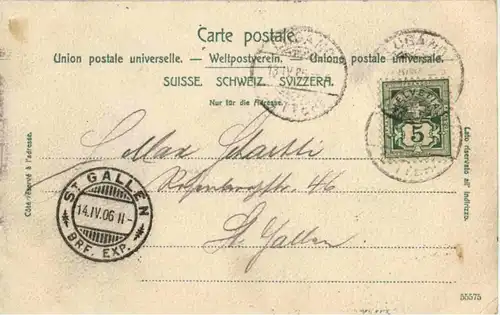 Carte postale.
Union postale universelle. — Weltpostverein. — Unione postale universale.
SUISSE. SCHWEIZ. SVIZZERA.
Nur für die Adresse.
LUGANO
13.IV.06
LETTERE
LUGANO
LETTERE
HELVETIA
5
Côté réservé à l'adresse.
Lato riservato all' indirizzo.
Max
46
St. Gallen
ST GALLEN
14.IV.06 11-
BRF. EXP.
55575